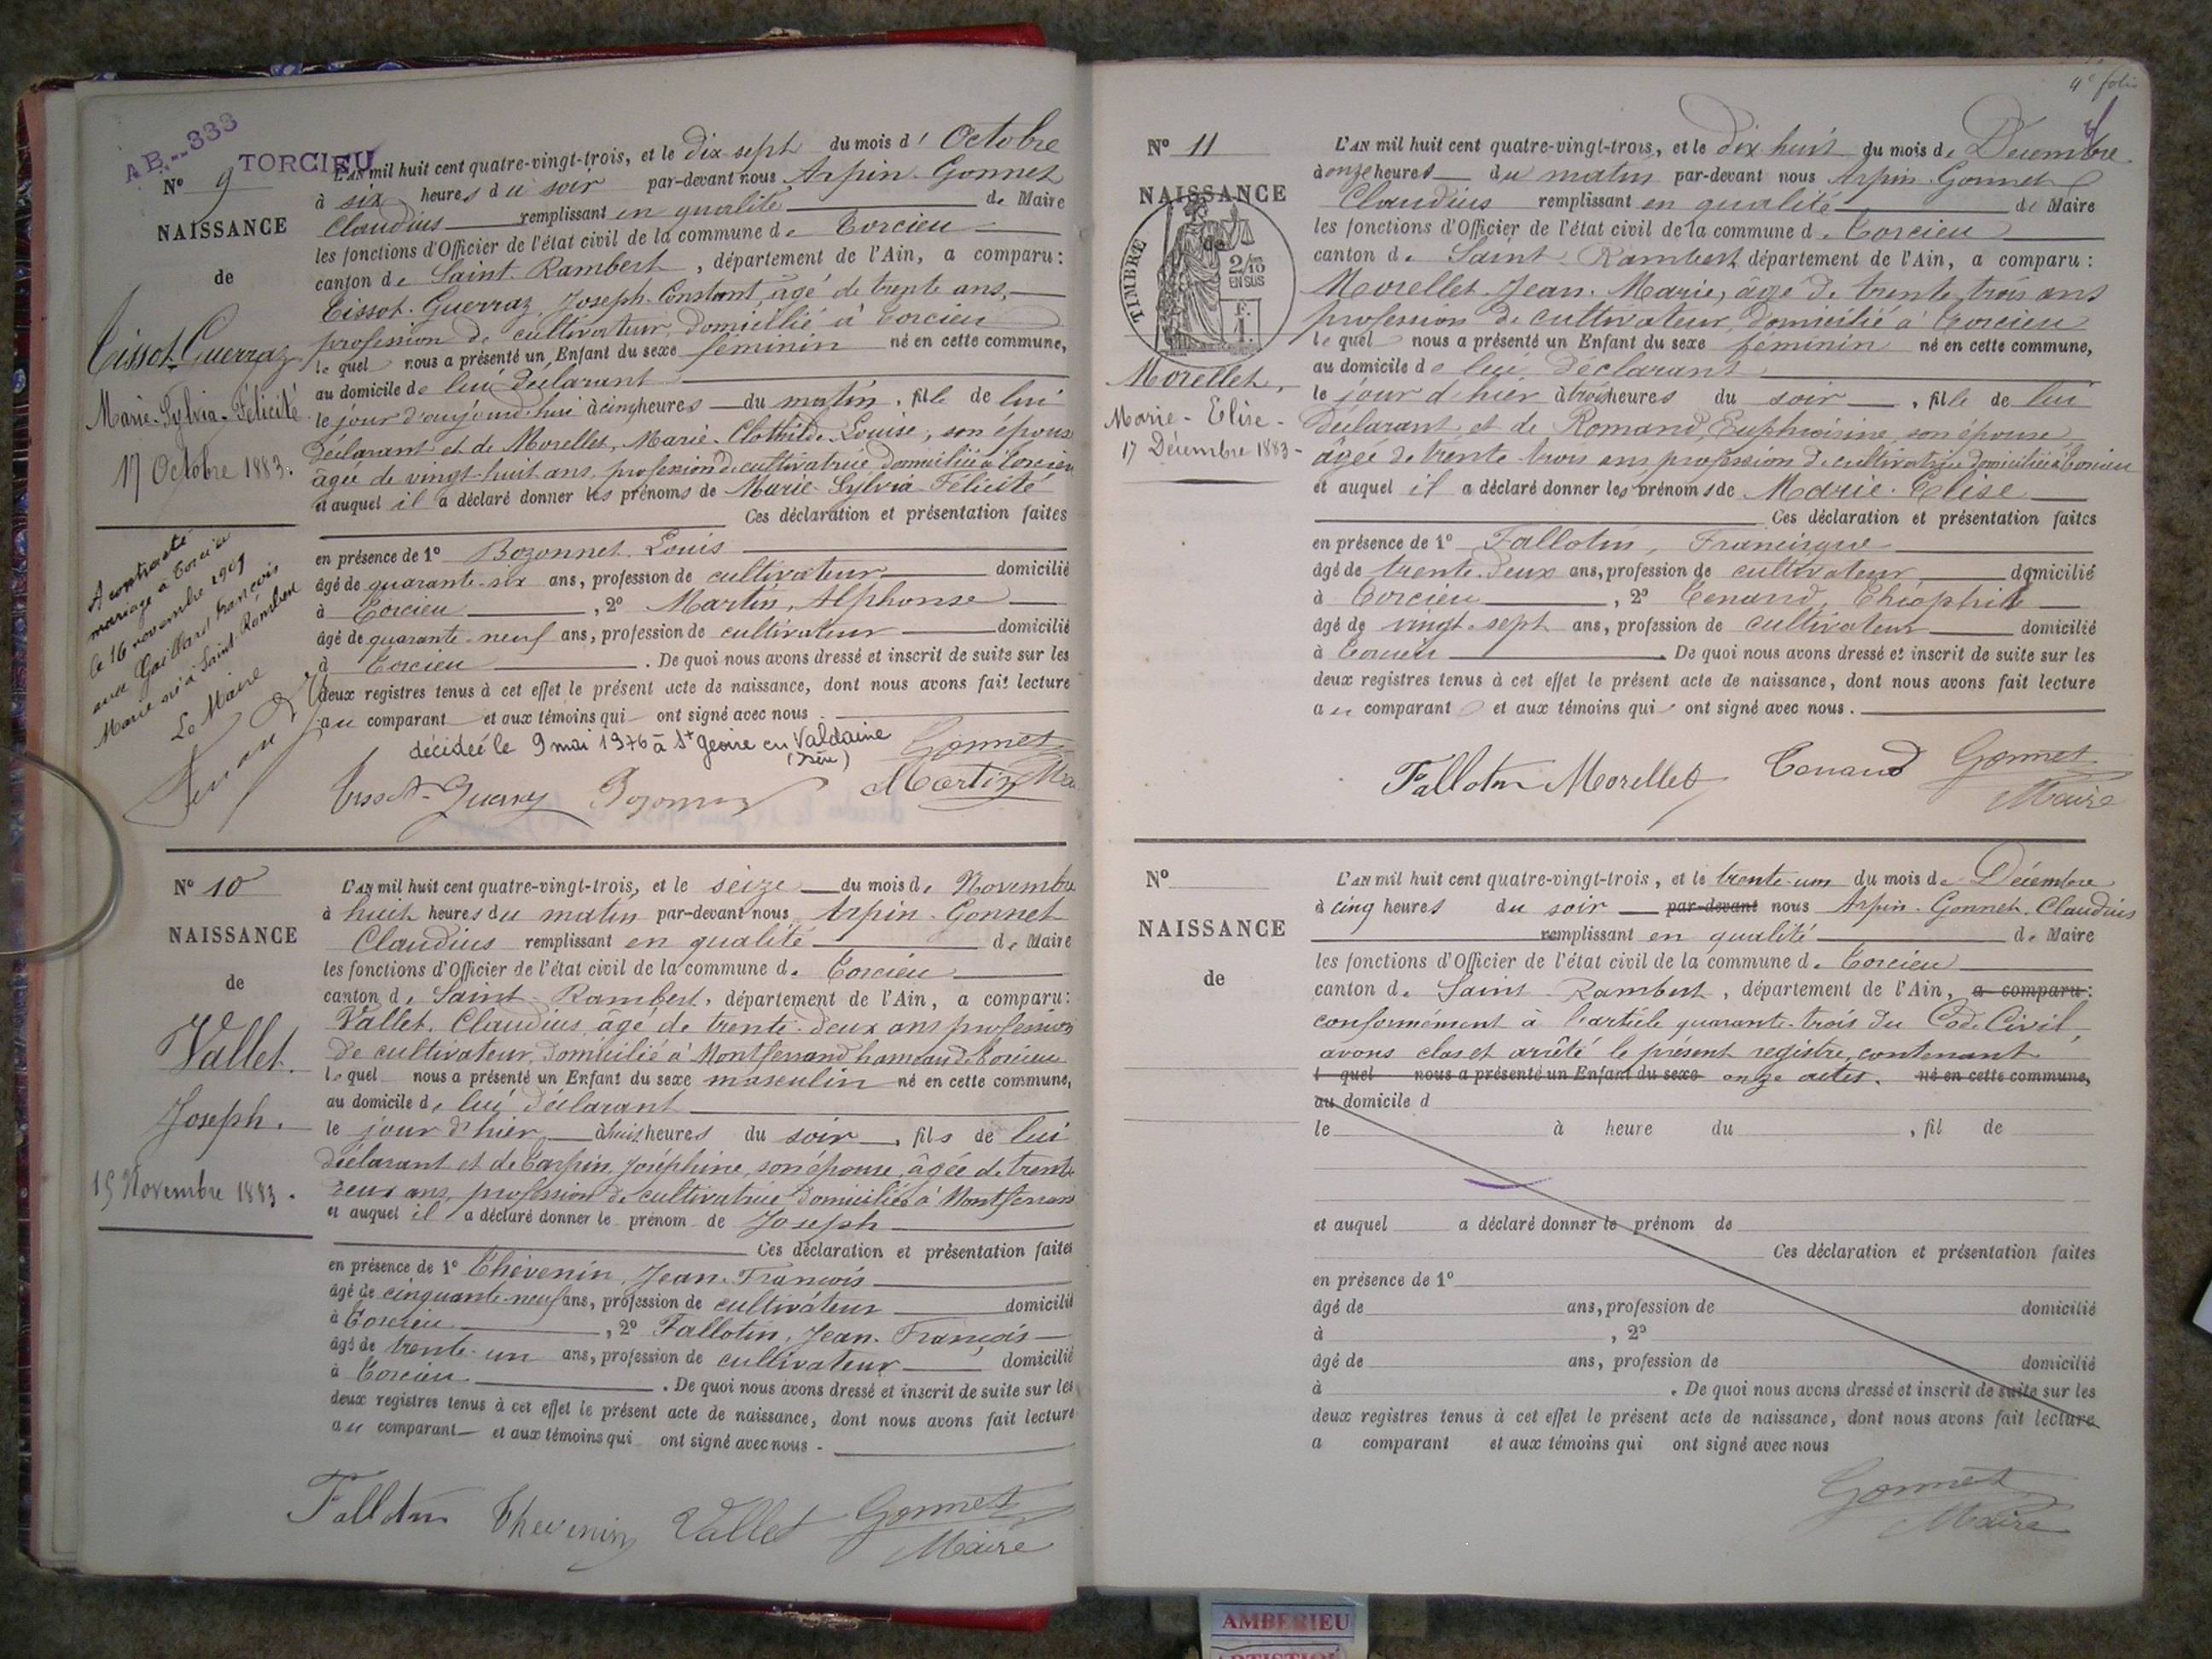 AB--333
TORCIEU
Nº 9
NAISSANCE
de
Tissot-Guerraz
Marie-Sylvia-Félicité
17 Octobre 1883.
A contracté
mariage à Torcieu
le 16 novembre 1907
avec Gaillard François
Marie né à Saint-Rambert
Le Maire
L'AN mil huit cent quatre-vingt-trois, et le dix-sept du mois d'Octobre
à six heures du soir par-devant nous Arpin-Gonnet
Claudius remplissant en qualité de Maire
les fonctions d'Officier de l'état civil de la commune de Torcieu
canton de Saint-Rambert, département de l'Ain, a comparu:
Tissot-Guerraz, Joseph-Constant, âgé de trente ans,
profession de cultivateur, domicilié à Torcieu
lequel nous a présenté un Enfant du sexe féminin né en cette commune,
au domicile de lui déclarant
le jour d'aujourd'hui à cinq heures du matin, fille de lui
déclarant et de Morellet, Marie-Clothilde-Louise, son épouse
âgée de vingt-huit ans, profession de cultivatrice domiciliée à Torcieu
et auquel il a déclaré donner les prénoms de Marie-Sylvia-Félicité
Ces déclaration et présentation faites
en présence de 1º Bozonnet Louis
âgé de quarante-six ans, profession de cultivateur domicilié
à Torcieu, 2º Martin, Alphonse
âgé de quarante-neuf ans, profession de cultivateur domicilié
à Torcieu. De quoi nous avons dressé et inscrit de suite sur les
deux registres tenus à cet effet le présent acte de naissance, dont nous avons fait lecture
au comparant et aux témoins qui ont signé avec nous
décédée le 9 mai 1976 à St Geoire en Valdaine
(Isère)
Gonnet
Tissot-Guerraz Bozonnet Martin Maire
Nº 10
NAISSANCE
de
Vallet.
Joseph.
15 Novembre 1883.
L'AN mil huit cent quatre-vingt-trois, et le seize du mois de Novembre
à huit heures du matin par-devant nous Arpin-Gonnet
Claudius remplissant en qualité de Maire
les fonctions d'Officier de l'état civil de la commune de Torcieu
canton de Saint-Rambert, département de l'Ain, a comparu:
Vallet, Claudius, âgé de trente-deux ans profession
de cultivateur, domicilié à Montferrand hameau de Torcieu
lequel nous a présenté un Enfant du sexe masculin né en cette commune,
au domicile de lui déclarant
le jour d'hier à huit heures du soir, fils de lui
déclarant et de Carpin, Joséphine, son épouse, âgée de trente
deux ans, profession de cultivatrice domiciliée à Montferrand
et auquel il a déclaré donner le prénom de Joseph
Ces déclaration et présentation faites
en présence de 1º Thévenin, Jean-François
âgé de cinquante-neuf ans, profession de cultivateur domicilié
à Torcieu, 2º Fallotin, Jean-François
âgé de trente-un ans, profession de cultivateur domicilié
à Torcieu. De quoi nous avons dressé et inscrit de suite sur les
deux registres tenus à cet effet le présent acte de naissance, dont nous avons fait lecture
au comparant et aux témoins qui ont signé avec nous.
Fallotin Thévenin Vallet Gonnet
Maire
4e folio
Nº 11
NAISSANCE
de
TIMBRE
2/10
EN SUS
F.
1.
Morellet,
Marie-Elise-
17 Décembre 1883-
L'AN mil huit cent quatre-vingt-trois, et le dix huit du mois de Décembre
à onze heures du matin par-devant nous Arpin-Gonnet
Claudius remplissant en qualité de Maire
les fonctions d'Officier de l'état civil de la commune de Torcieu
canton de Saint-Rambert, département de l'Ain, a comparu:
Morellet Jean-Marie, âgé de trente trois ans
profession de cultivateur, domicilié à Torcieu
lequel nous a présenté un Enfant du sexe féminin né en cette commune,
au domicile de lui déclarant
le jour d'hier à trois heures du soir, fille de lui
déclarant et de Romand, Euphroisine, son épouse
âgée de trente trois ans profession de cultivatrice domiciliée à Torcieu
et auquel il a déclaré donner les prénoms de Marie-Elise
Ces déclaration et présentation faites
en présence de 1º Fallotin, Francisque
âgé de trente-deux ans, profession de cultivateur, domicilié
à Torcieu, 2º Tenand, Théophile
âgé de vingt-sept ans, profession de cultivateur domicilié
à Torcieu. De quoi nous avons dressé et inscrit de suite sur les
deux registres tenus à cet effet le présent acte de naissance, dont nous avons fait lecture
au comparant et aux témoins qui ont signé avec nous.
Fallotin Morellet Tenand Gonnet
Maire
Nº
NAISSANCE
de
L'AN mil huit cent quatre-vingt-trois, et le trente-un du mois de Décembre
à cinq heures du soir par-devant nous Arpin-Gonnet, Claudius
remplissant en qualité de Maire
les fonctions d'Officier de l'état civil de la commune de Torcieu
canton de Saint-Rambert, département de l'Ain, a comparu:
conformément à l'article quarante-trois du Code Civil,
avons clos et arrêté le présent registre, contenant
l quel nous a présenté un Enfant du sexe onze actes. né en cette commune,
au domicile d
le à heure du , fil de
et auquel a déclaré donner le prénom de
Ces déclaration et présentation faites
en présence de 1º
âgé de ans, profession de domicilié
à , 2º
âgé de ans, profession de domicilié
à . De quoi nous avons dressé et inscrit de suite sur les
deux registres tenus à cet effet le présent acte de naissance, dont nous avons fait lecture
a comparant et aux témoins qui ont signé avec nous
Gonnet
Maire
AMBERIEU